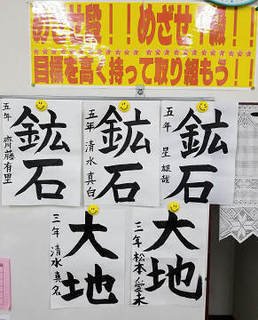 めざせ段!!めざせ!級!!
目標を高く持って取り組もう!!
鉱石
五年 星
鉱石
五年 清水 真白
鉱石
五年 齊藤 有里
大地
三年 松本 愛未
大地
三年 清水 真名